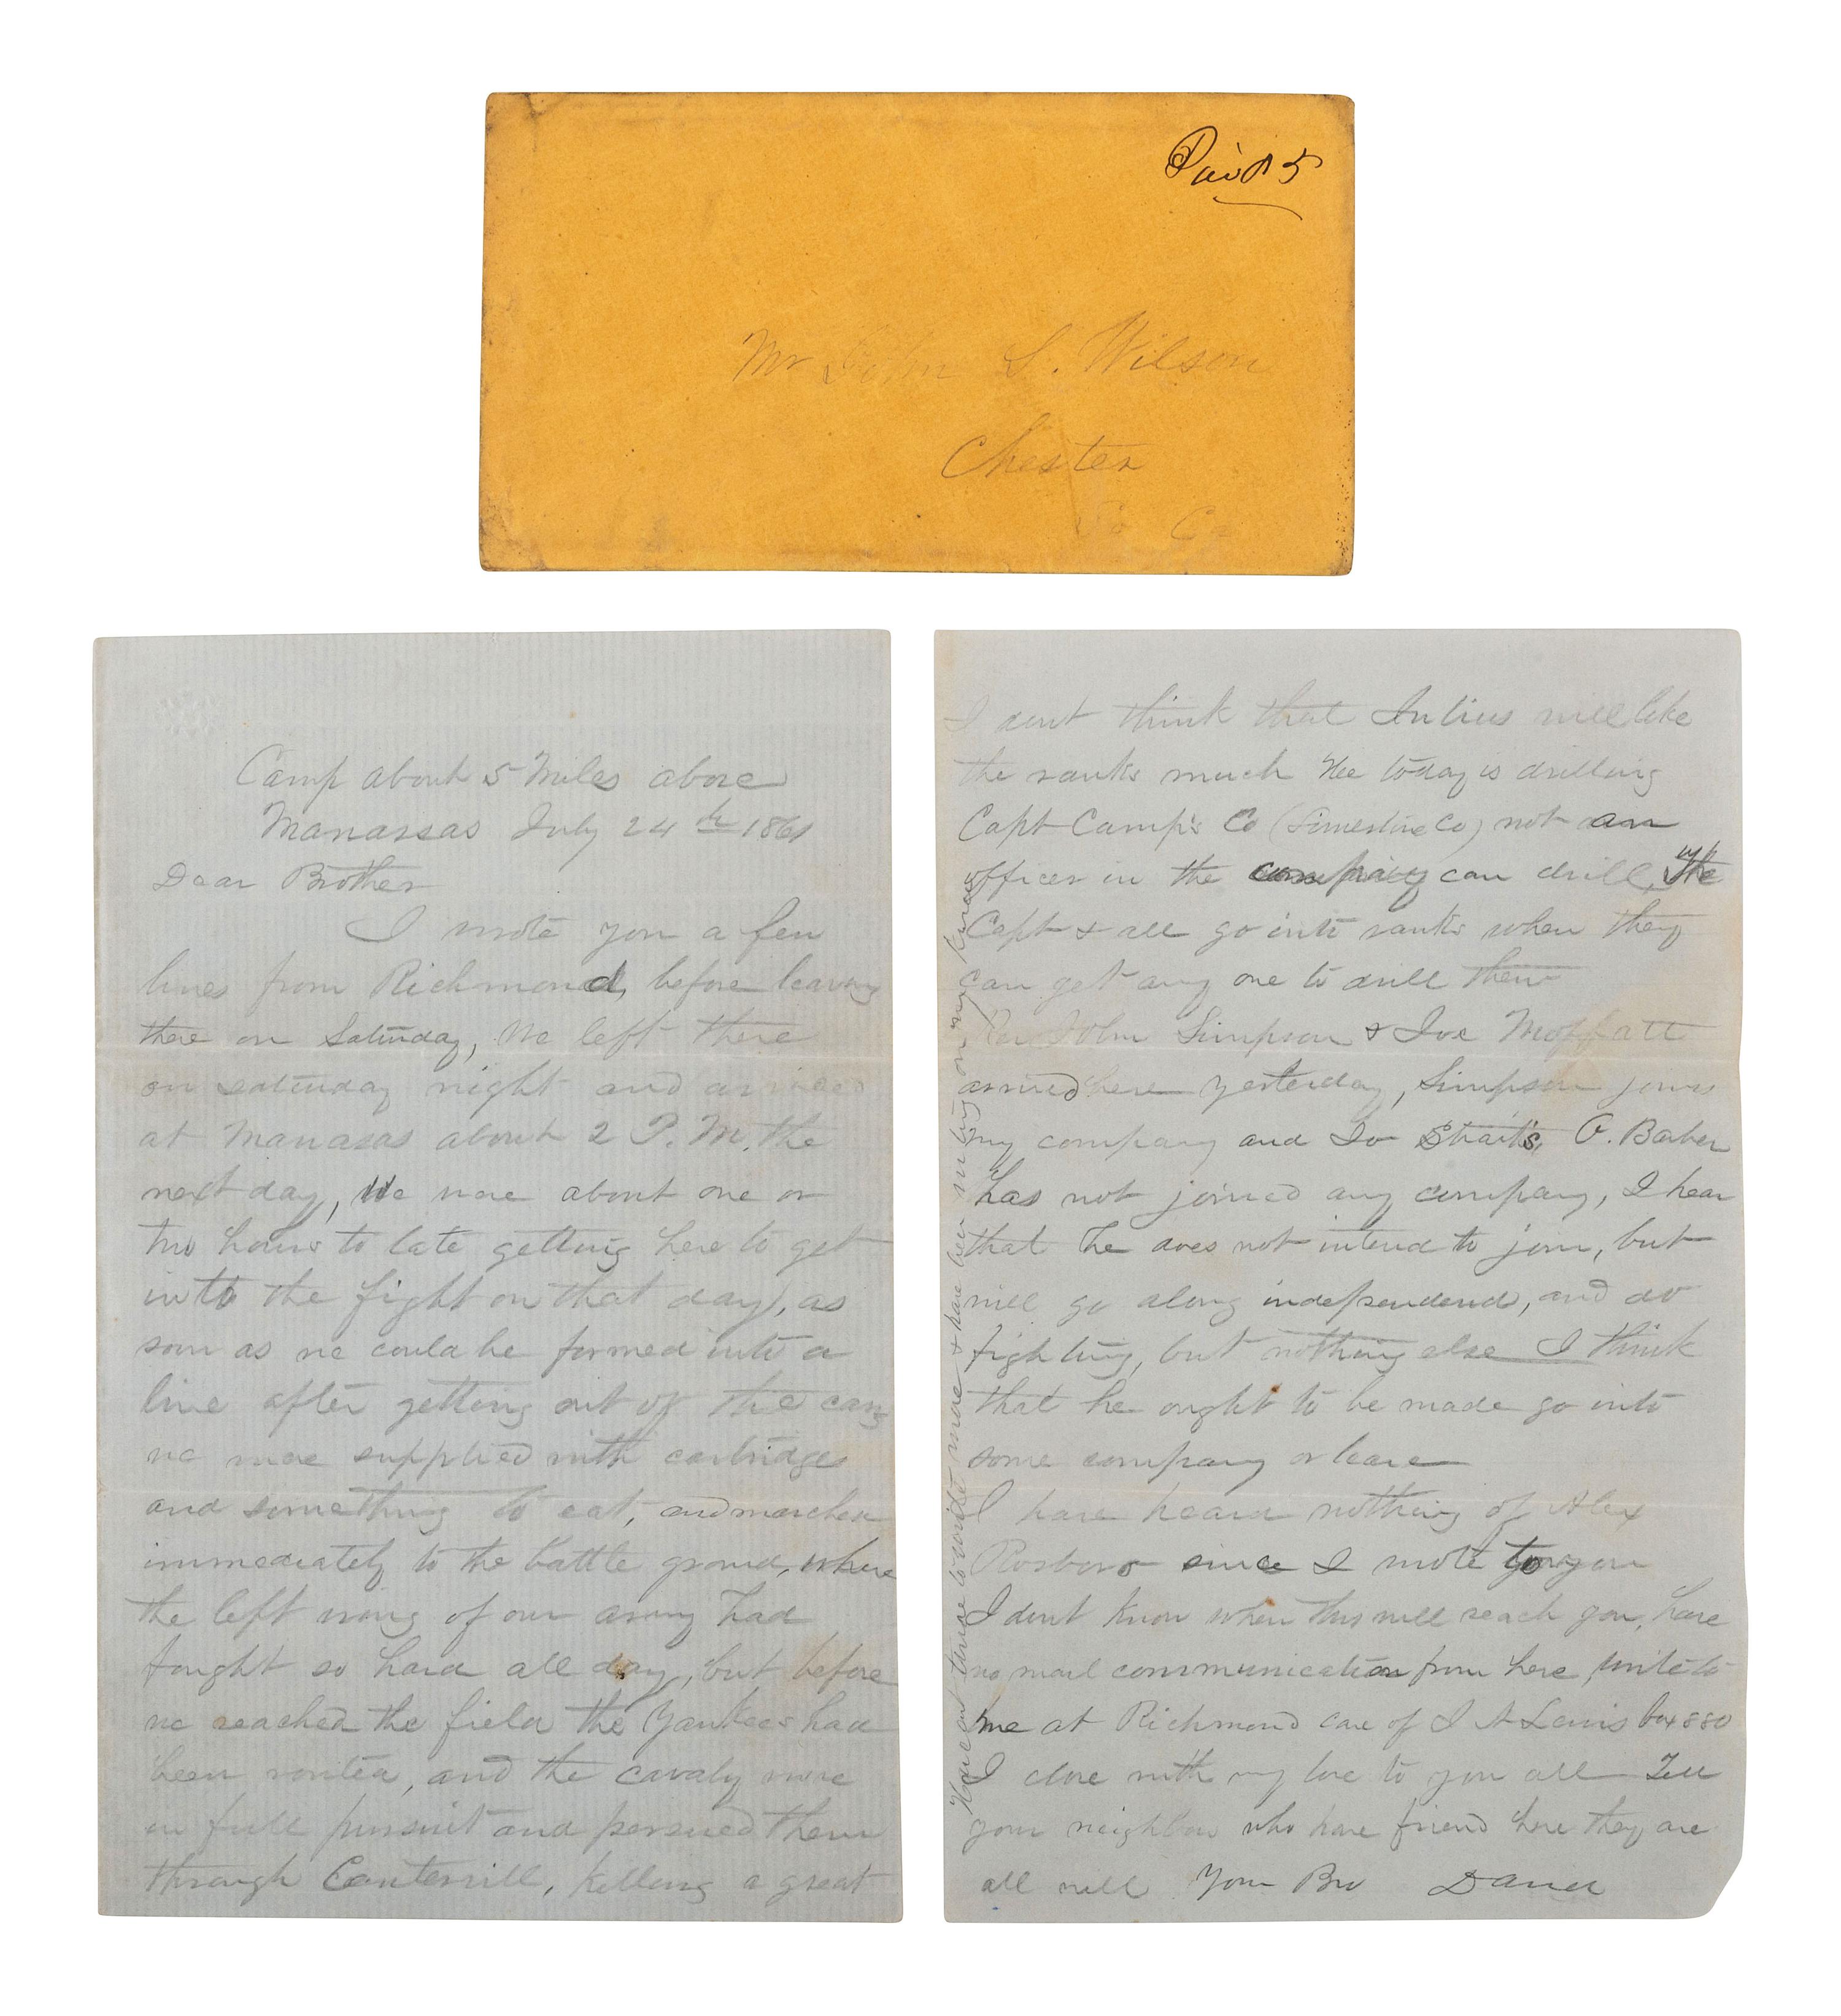 Paid 5
Mr John S. Wilson
Chester
So Ca
Camp about 5 Miles above
Manassas July 24th 1861
Dear Brother
I wrote you a few
lines from Richmond, before leaving
there on Saturday, We left there
on Saturday night and arrived
at Manasas about 2 P.M. the
next day, We were about one or
two hours to late getting here to get
into the fight on that day, as
soon as we could be formed into a
line after getting out of the cars
we were supplied with cartridges
and something to eat, and marched
immediately to the battle ground, where
the left wing of our army had
fought so hard all day, but before
we reached the field the Yankees had
been routed, and the cavalry were
in full pursuit and persued them
through Centervill, killing a great
I dont think that Julius will like
the ranks much Hee today is drilling
Capt Camp's Co (Limestone Co) not an
officer in the company can drill, the
Capt & all go into ranks when they
can get any one to drill them
John Simpson & Joe Moffatt
arrived here yesterday, Simpson joins
my company and Jo Strait's, O. Barber
has not joined any company, I hear
that he does not intend to join, but
will go along independend, and do
fighting, but nothing else I think
that he ought to be made go into
some company or leave
I have heard nothing of Alex
Rosboro since I wrote to you
I dont know when this will reach you, have
no mail communication from here, write to
me at Richmond care of J A Lewis box 880
I close with my love to you all Tell
your neighbors who have friend here they are
all well Your Bro Daniel
Have not time to write more & have been writing on my knees